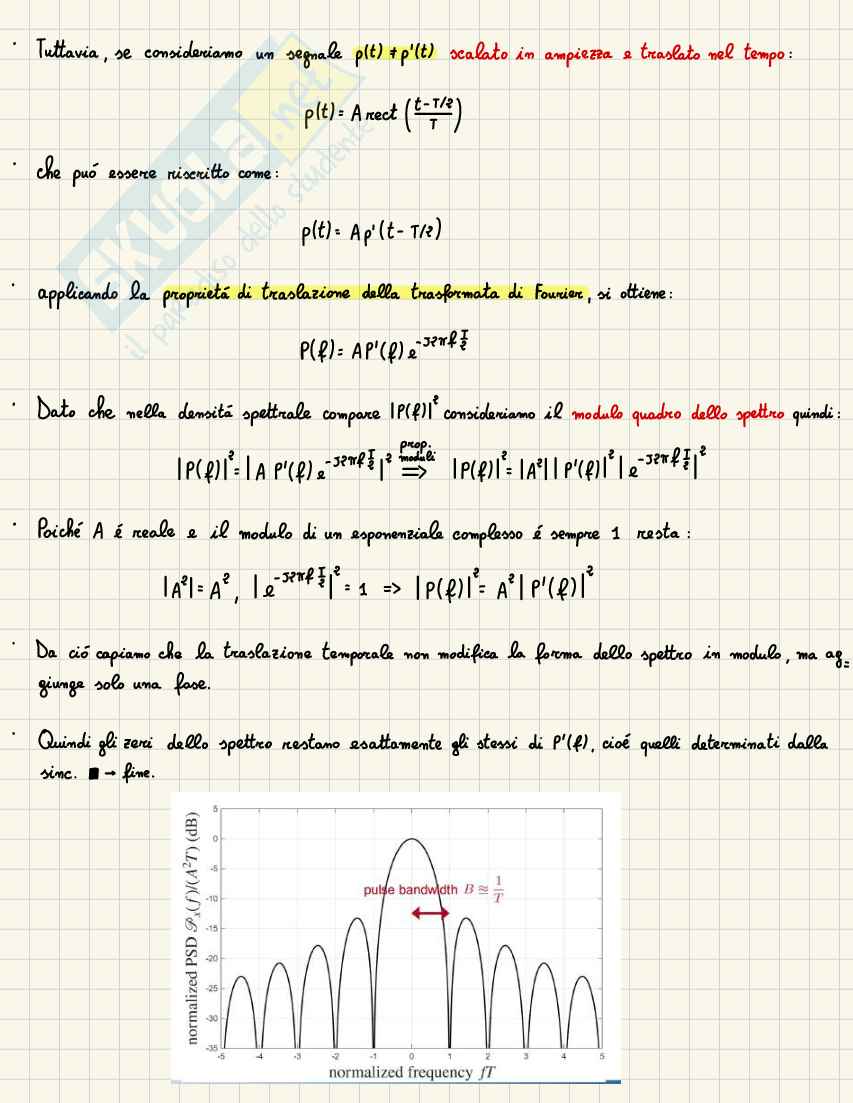 · Tuttavia, se consideriamo un segnale p(t) ≠ p'(t) scalato in ampiezza e traslato nel tempo:
p(t) = A rect ((t-T/2)/T)
· che puó essere riscritto come:
p(t) = A p'(t - T/2)
· applicando la proprietá di traslazione della trasformata di Fourier, si ottiene:
P(f) = A P'(f) e^{-J2πf T/2}
· Dato che nella densitá spettrale compare |P(f)|² consideriamo il modulo quadro dello spettro quindi:
|P(f)|² = |A P'(f) e^{-J2πf T/2}|² prop. moduli => |P(f)|² = |A²| |P'(f)|² |e^{-J2πf T/2}|²
· Poiché A é reale e il modulo di un esponenziale complesso é sempre 1 resta:
|A²| = A², |e^{-J2πf T/2}|² = 1 => |P(f)|² = A² |P'(f)|²
· Da ció capiamo che la traslazione temporale non modifica la forma dello spettro in modulo, ma ag=
giunge solo una fase.
· Quindi gli zeri dello spettro restano esattamente gli stessi di P'(f), cioé quelli determinati dalla
sinc. ■ → fine.
SKUOLA.net
il paradiso dello studente
normalized PSD 𝒫x(f)/(A²T) (dB)
5
0
-5
-10
-15
-20
-25
-30
-35
pulse bandwidth B ≅ 1/T
-5 -4 -3 -2 -1 0 1 2 3 4 5
normalized frequency fT